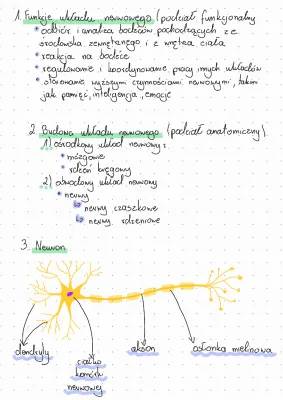 1. Funkcje układu nerwowego (podział funkcjonalny)
* odbiór i analiza bodźców pochodzących ze
środowiska zewnętrznego i z wnętrza ciała
* reakcja na bodźce
* regulowanie i koordynowanie pracy innych układów
* sterowanie wyższymi czynnościami nerwowymi, takimi
jak pamięć, inteligencja, emocje
2. Budowa układu nerwowego (podział anatomiczny)
1) ośrodkowy układ nerwowy:
* mózgowie
* rdzeń kręgowy
2) obwodowy układ nerwowy
* nerwy
↳ nerwy czaszkowe
↳ nerwy rdzeniowe
3. Neuron
dendryty
ciało
komórki
nerwowej
akson
osłonka mielinowa